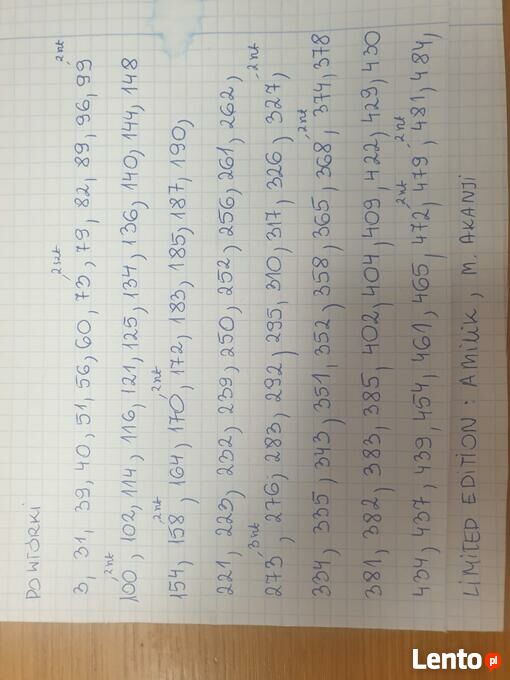 POWTÓRKI
3, 31, 39, 40, 51, 56, 60, 73, 79, 82, 89, 96, 99
2szt 2szt
100, 102, 114, 116, 121, 125, 134, 136, 140, 144, 148
2szt
154, 158, 164, 170, 172, 183, 185, 187, 190,
2szt 2szt
221, 223, 232, 239, 250, 252, 256, 261, 262,
273, 276, 283, 292, 295, 310, 317, 326, 327,
3szt 2szt
334, 335, 343, 351, 352, 358, 365, 368, 374, 378
2szt
381, 382, 383, 385, 402, 404, 409, 422, 429, 430
434, 437, 439, 454, 461, 465, 472, 479, 481, 484,
2szt 2szt
LIMITED EDITION: A MILIK, M. AKANJI
Lento.pl